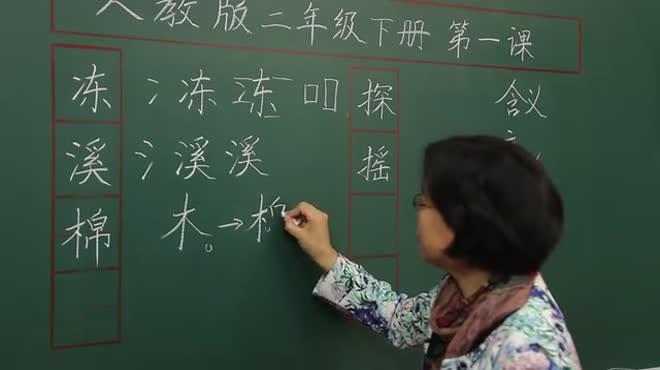 人教版二年级下册 第一课
冻 冫冻 冻 探 含义
溪 氵溪 溪 摇
棉 木 → 木